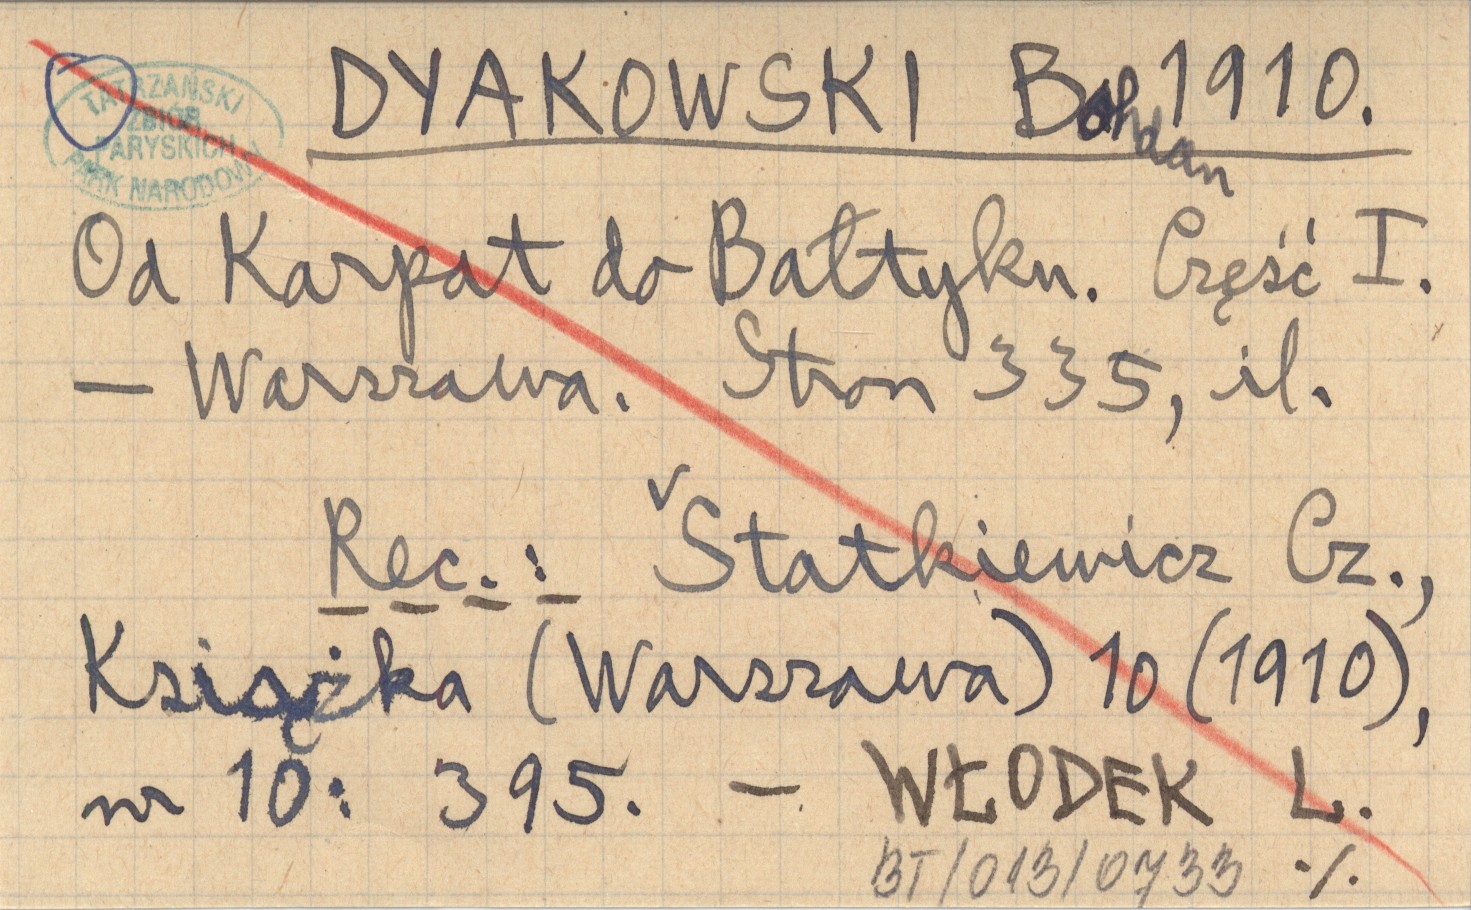 TATRZAŃSKI
ZBIÓR
PARYSKICH
PARK NARODOWY
DYAKOWSKI Bohdan 1910.
Od Karpat do Bałtyku. Część I.
— Warszawa. Stron 335, il.
Rec.: Statkiewicz Cz.,
Książka (Warszawa) 10 (1910),
nr 10: 395. — WŁODEK L.
BT/013/0733 ·/.